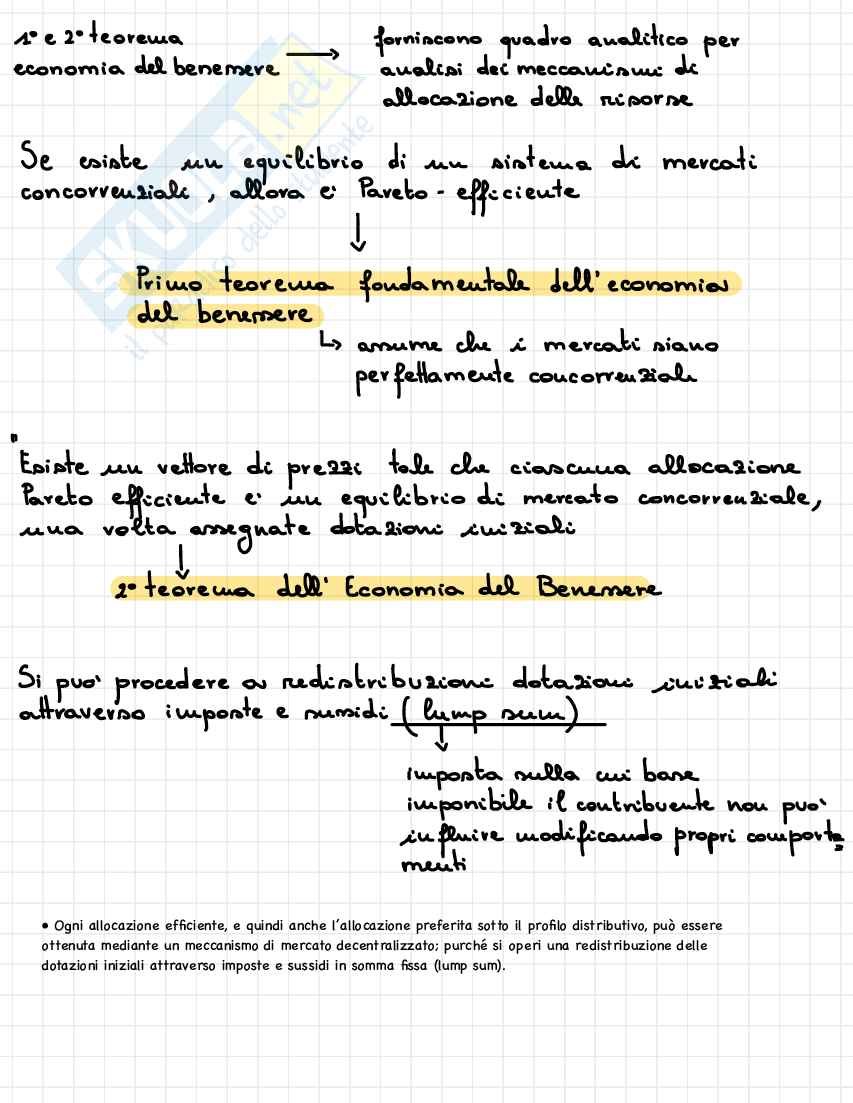 1° e 2° teorema
economia del benessere → forniscono quadro analitico per
analisi dei meccanismi di
allocazione delle risorse
Se esiste un equilibrio di un sistema di mercati
concorrenziali, allora e' Pareto - efficiente
↓
Primo teorema fondamentale dell'economia
del benessere
↳ assume che i mercati siano
perfettamente concorrenziali
"
Esiste un vettore di prezzi tale che ciascuna allocazione
Pareto efficiente e' un equilibrio di mercato concorrenziale,
una volta assegnate dotazioni iniziali
↓
2° teorema dell' Economia del Benessere
Si puo' procedere a redistribuzioni dotazioni iniziali
attraverso imposte e sussidi (lump sum)
↓
imposta sulla cui base
imponibile il contribuente non puo'
influire modificando propri comporta=
menti
• Ogni allocazione efficiente, e quindi anche l'allocazione preferita sotto il profilo distributivo, può essere
ottenuta mediante un meccanismo di mercato decentralizzato; purché si operi una redistribuzione delle
dotazioni iniziali attraverso imposte e sussidi in somma fissa (lump sum).
SKUOLA.net